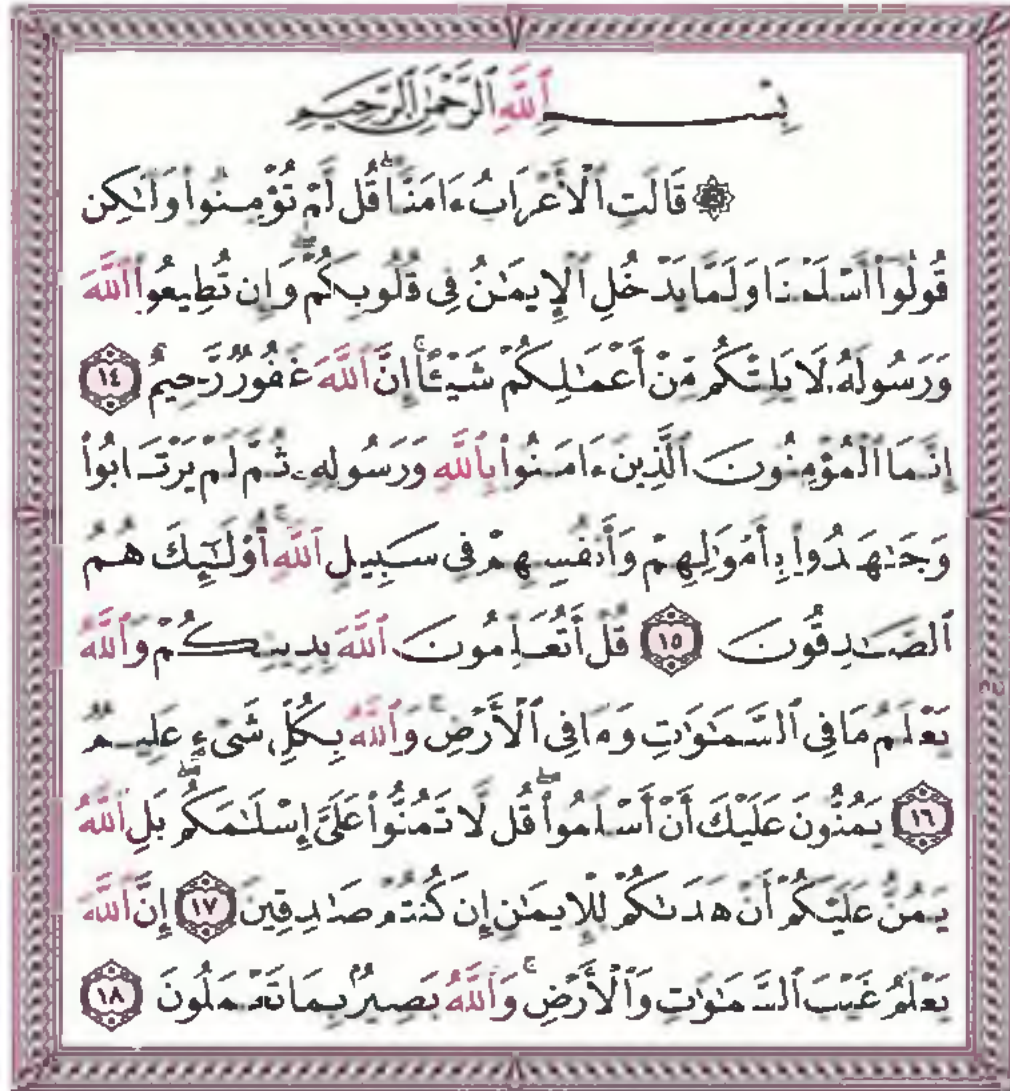 بِسْمِ ٱللَّهِ ٱلرَّحْمَٰنِ ٱلرَّحِيمِ
۞ قَالَتِ ٱلْأَعْرَابُ ءَامَنَّا ۖ قُل لَّمْ تُؤْمِنُوا۟ وَلَٰكِن
قُولُوٓا۟ أَسْلَمْنَا وَلَمَّا يَدْخُلِ ٱلْإِيمَٰنُ فِى قُلُوبِكُمْ ۖ وَإِن تُطِيعُوا۟ ٱللَّهَ
وَرَسُولَهُۥ لَا يَلِتْكُم مِّنْ أَعْمَٰلِكُمْ شَيْـًٔا ۚ إِنَّ ٱللَّهَ غَفُورٌ رَّحِيمٌ ١٤
إِنَّمَا ٱلْمُؤْمِنُونَ ٱلَّذِينَ ءَامَنُوا۟ بِٱللَّهِ وَرَسُولِهِۦ ثُمَّ لَمْ يَرْتَابُوا۟
وَجَٰهَدُوا۟ بِأَمْوَٰلِهِمْ وَأَنفُسِهِمْ فِى سَبِيلِ ٱللَّهِ ۚ أُو۟لَٰٓئِكَ هُمُ
ٱلصَّٰدِقُونَ ١٥ قُلْ أَتُعَلِّمُونَ ٱللَّهَ بِدِينِكُمْ وَٱللَّهُ
يَعْلَمُ مَا فِى ٱلسَّمَٰوَٰتِ وَمَا فِى ٱلْأَرْضِ ۚ وَٱللَّهُ بِكُلِّ شَىْءٍ عَلِيمٌ
١٦ يَمُنُّونَ عَلَيْكَ أَنْ أَسْلَمُوا۟ ۖ قُل لَّا تَمُنُّوا۟ عَلَىَّ إِسْلَٰمَكُم ۖ بَلِ ٱللَّهُ
يَمُنُّ عَلَيْكُمْ أَنْ هَدَىٰكُمْ لِلْإِيمَٰنِ إِن كُنتُمْ صَٰدِقِينَ ١٧ إِنَّ ٱللَّهَ
يَعْلَمُ غَيْبَ ٱلسَّمَٰوَٰتِ وَٱلْأَرْضِ ۚ وَٱللَّهُ بَصِيرٌۢ بِمَا تَعْمَلُونَ ١٨